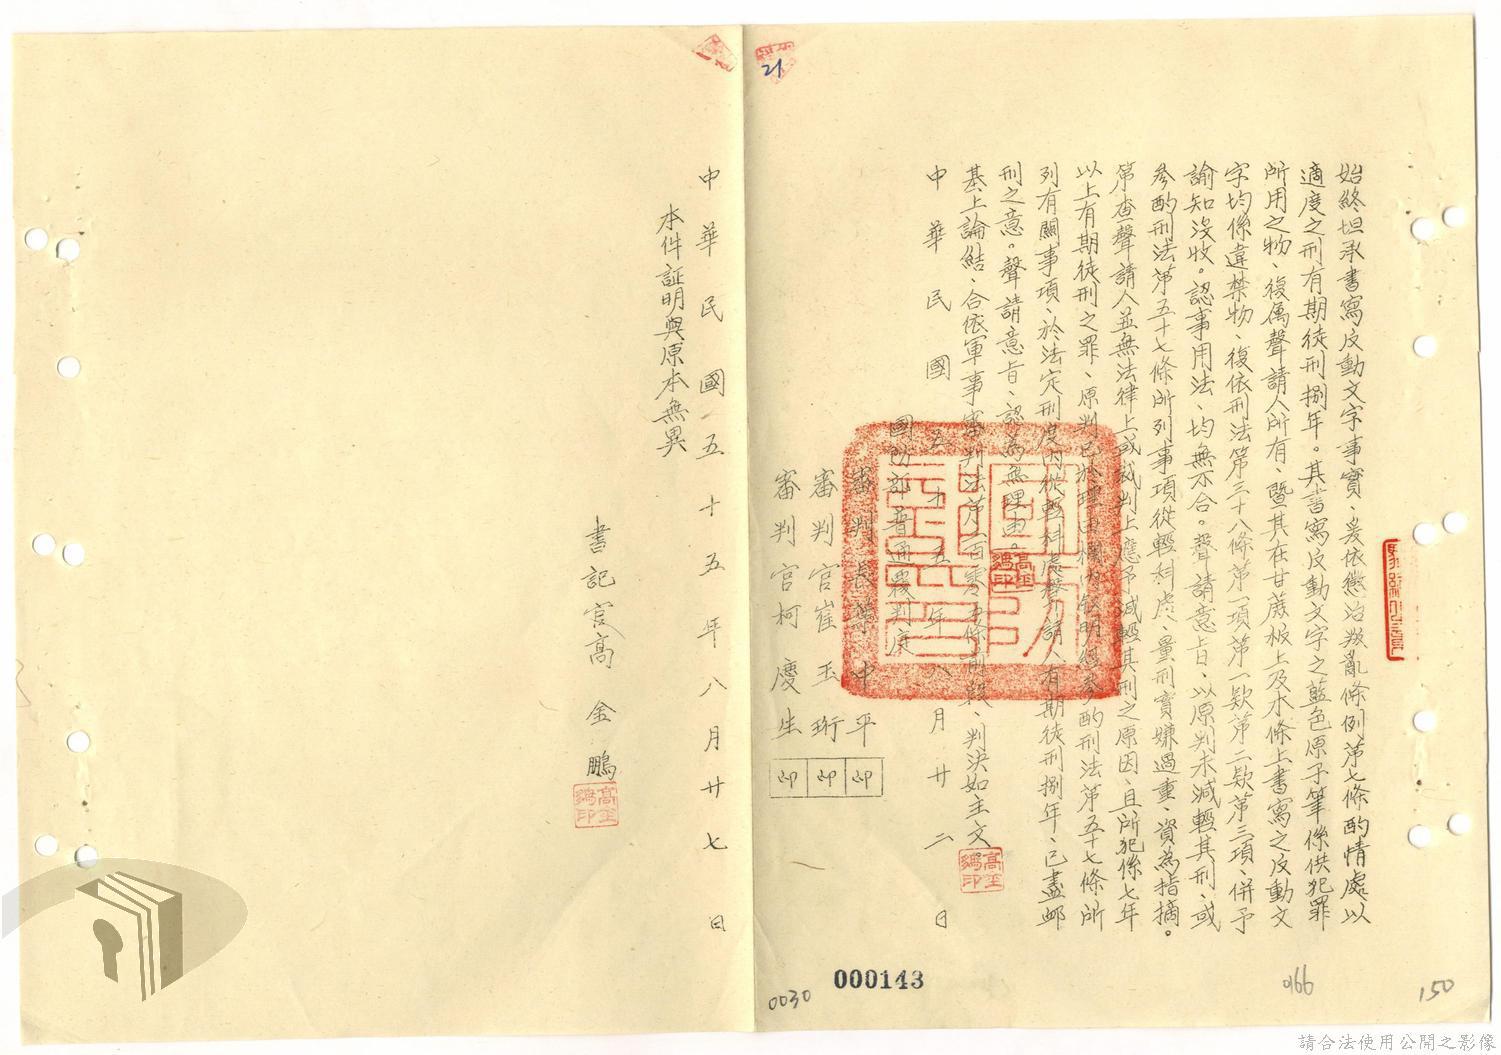 始終坦承書寫反動文字事實、爰依懲治叛亂條例第七條酌情處以
適度之刑有期徒刑捌年。其書寫反動文字之藍色原子筆係供犯罪
所用之物、復屬聲請人所有、暨其在甘蔗板上及木條上書寫之反動文
字均係違禁物、復依刑法第三十八條第一項第一欵第二欵第三項、併予
諭知沒收。認事用法、均無不合。聲請意旨、以原判未減輕其刑、或
參酌刑法第五十七條所列事項從輕科處、量刑實嫌過重、資為指摘。
第查聲請人並無法律上或裁判上應予減輕其刑之原因、且所犯係七年
以上有期徒刑之罪、原判已於理由欄內敍明經參酌刑法第五十七條所
列有關事項、於法定刑度內從輕科處聲請人有期徒刑捌年、已盡卹
刑之意。聲請意旨、認為無理由。
基上論結、合依軍事審判法第二百零五條前段、判決如主文
中華民國五十五年八月廿二日
國防部普通覆判庭
審判長葉中平印
審判官崔玉珩印
審判官柯慶生印
中華民國五十五年八月廿七日
本件証明與原本無異
書記官高金鵬
21
000143
0030
0166
150
請合法使用公開之影像